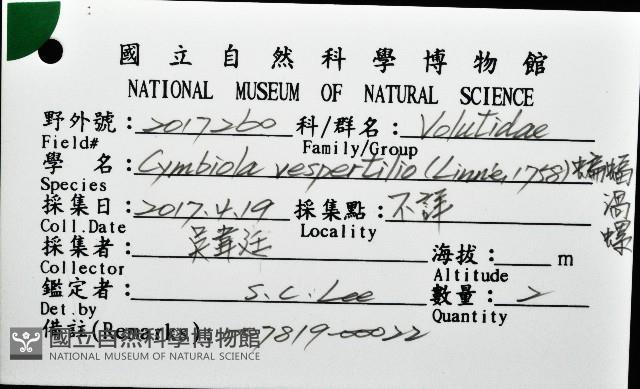 國立自然科學博物館
NATIONAL MUSEUM OF NATURAL SCIENCE
野外號：2017260 科/群名：Volutidae
Field# Family/Group
學 名：Cymbiola vespertilio (Linné, 1758) 蝙蝠渦螺
Species
採集日：2017.4.19 採集點：不詳
Coll.Date Locality
採集者：吳韋廷 海拔： m
Collector Altitude
鑑定者：S.C.Lee 數量：2
Det.by Quantity
備註(Remarks) 7819-00022
國立自然科學博物館
NATIONAL MUSEUM OF NATURAL SCIENCE